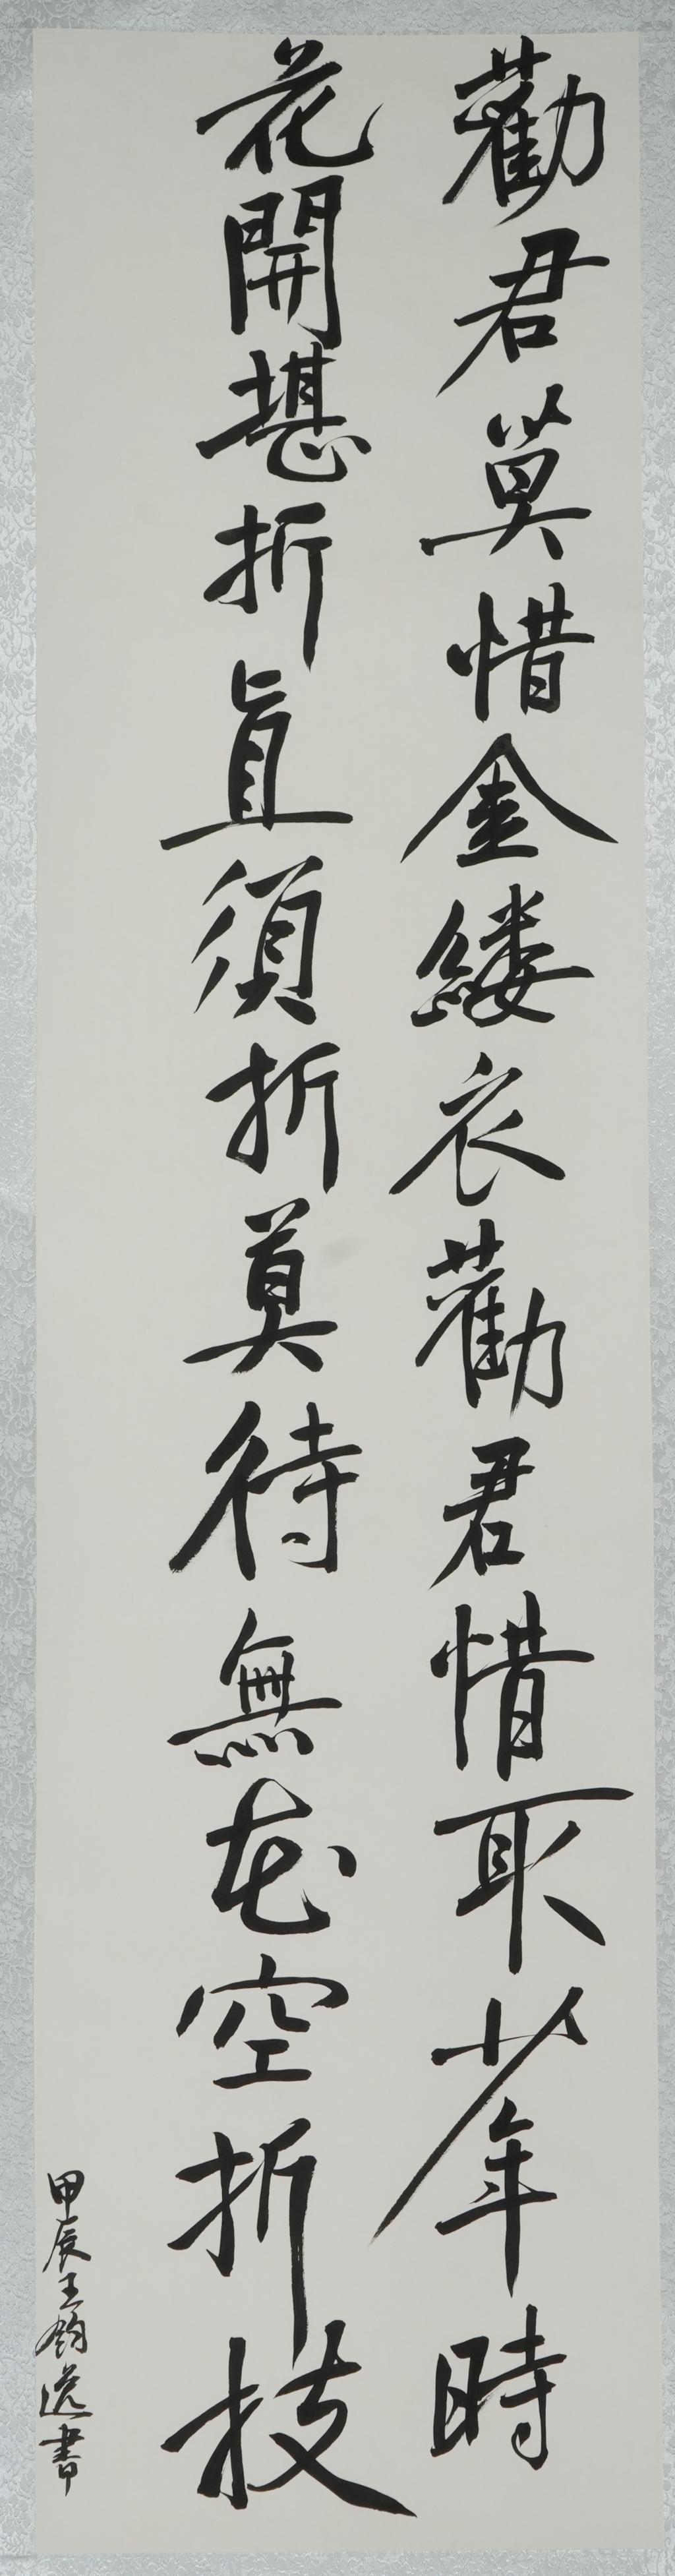 勸君莫惜金縷衣勸君惜取少年時
花開堪折直須折莫待無花空折枝
甲辰王鈞逸書